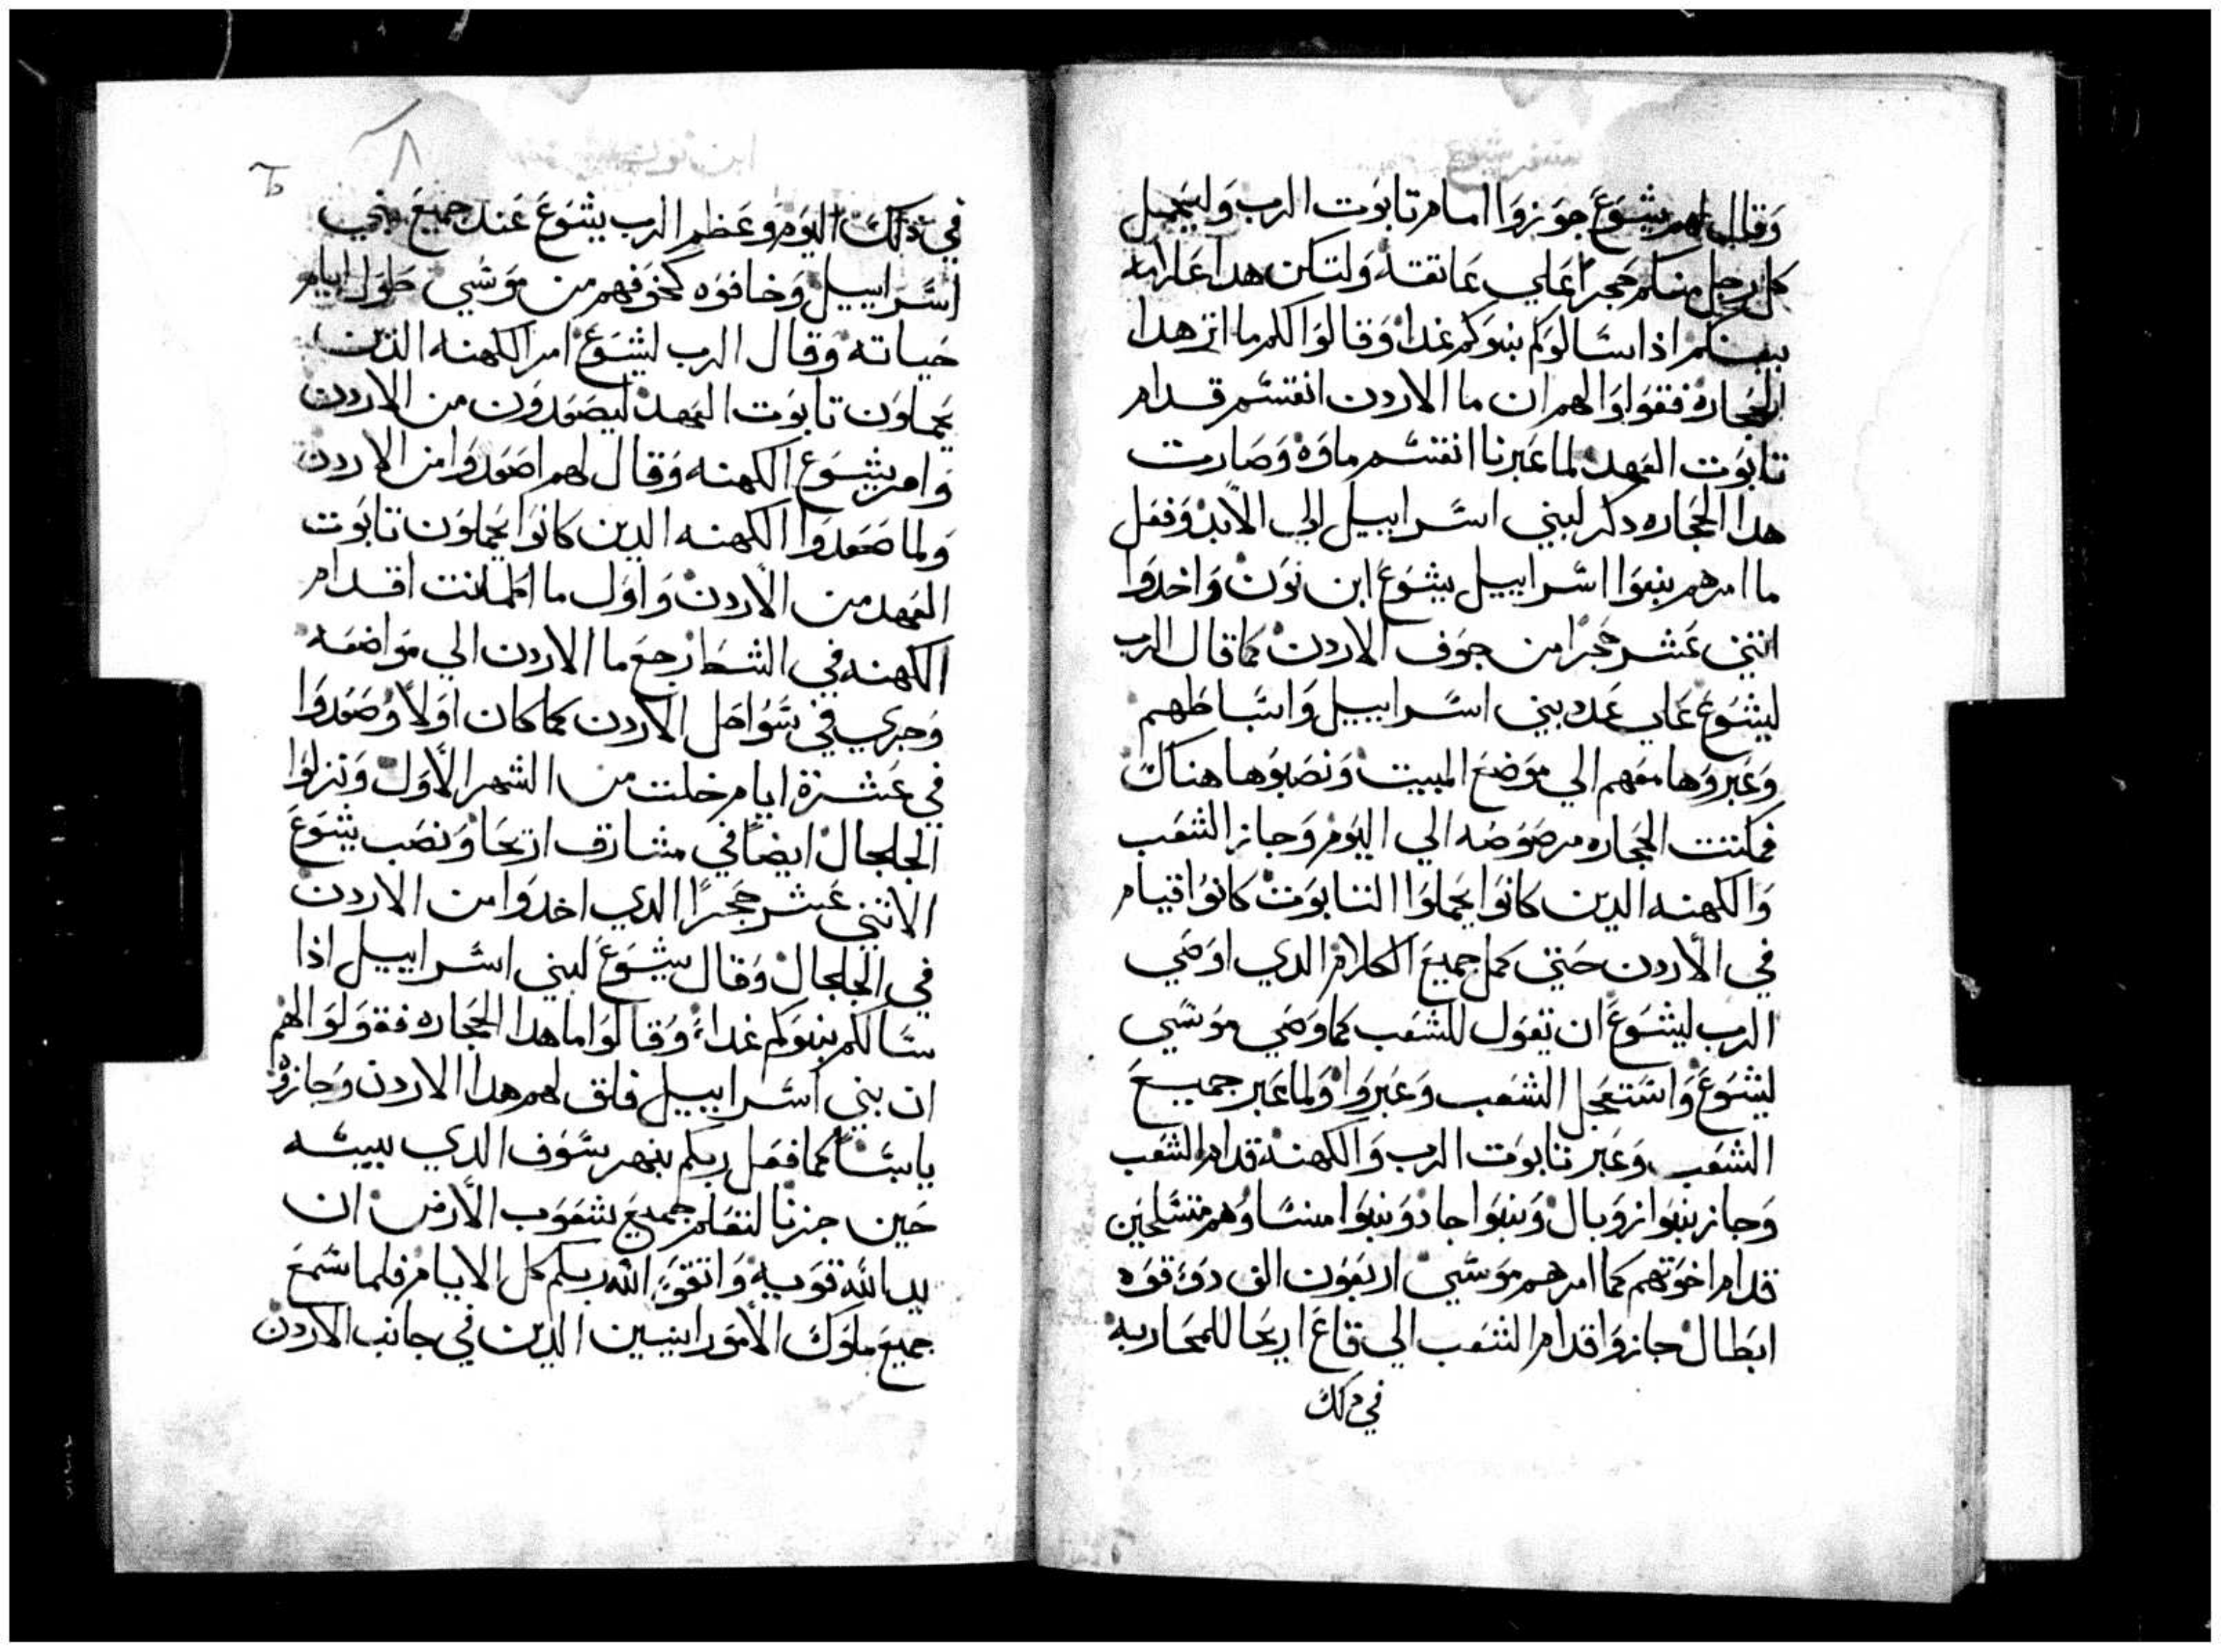 سفر يشوع
وقال لهم يشوع جوزوا امام تابوت الرب وليحمل
كل رجل منكم حجرًا علي عاتقه ولتكن هدا علامه
بينكم اذا سالوكم بنوكم غدا وقالوا لكم ما اثر هدا
الحجاره فقولوا لهم ان ما الاردن انقسم قدام
تابوت العهد لما عبرنا انقسم ماوه وصارت
هدا الحجاره دكر لبني اسراييل الي الابد وفعل
ما امرهم بنوا اسراييل يشوع ابن نون واخدوا
اثني عشر حجرًا من جوف الاردن كما قال الرب
ليشوع علي عدد بني اسراييل واسباطهم
وعبروها معهم الي موضع المبيت ونصبوها هناك
فمكتت الحجاره مرصوصه الي اليوم وجاز الشعب
والكهنه الدين كانوا يحملوا التابوت كانوا قيام
في الاردن حتي كمل جميع الكلام الدي اوصي
الرب ليشوع ان تقول للشعب كما وصي موسي
ليشوع واستعجل الشعب وعبروا ولما عبر جميع
الشعب وعبر تابوت الرب والكهنه قدام الشعب
وجاز بنوا روبال وبنوا جاد وبنوا منسا وهم متسلحين
قدام اخوتهم كما امرهم موسي اربعون الف دوي قوه
ابطال جازوا قدام الشعب الي قاع اريحا للمحاربه
في دلك
ابن نون
في دلك اليوم وعظم الرب يشوع عند جميع بني
اسراييل وخافوه كخوفهم من موسي طول ايام
حياته وقال الرب ليشوع امر الكهنه الذين
يحملون تابوت العهد ليصعدون من الاردن
وامر يشوع الكهنه وقال لهم اصعدوا من الاردن
ولما صعدوا الكهنه الدين كانوا يحملون تابوت
العهد من الاردن واول ما اطمانت اقدام
الكهنه في الشط رجع ما الاردن الي مواضعه
وجري في سواحل الاردن كما كان اولا وصعدوا
في عشرة ايام خلت من الشهر الاول ونزلوا
الجلجال ايضًا في مشارف اريحا ونصب يشوع
الاثني عشر حجرًا الدي اخدوا من الاردن
في الجلجال وقال يشوع لبني اسراييل اذا
سالكم بنوكم غداً وقالوا ما هدا الحجاره فقولوا لهم
ان بني اسراييل فلق لهم هدا الاردن وجازوه
يابسًا كما فعل ربكم بنهر سوف الدي يبسه
حين جزنا لتعلم جميع شعوب الارض ان
يد الله قويه واتقوا الله ربكم كل الايام فلما سمع
جميع ملوك الامورانيين الدين في جانب الاردن